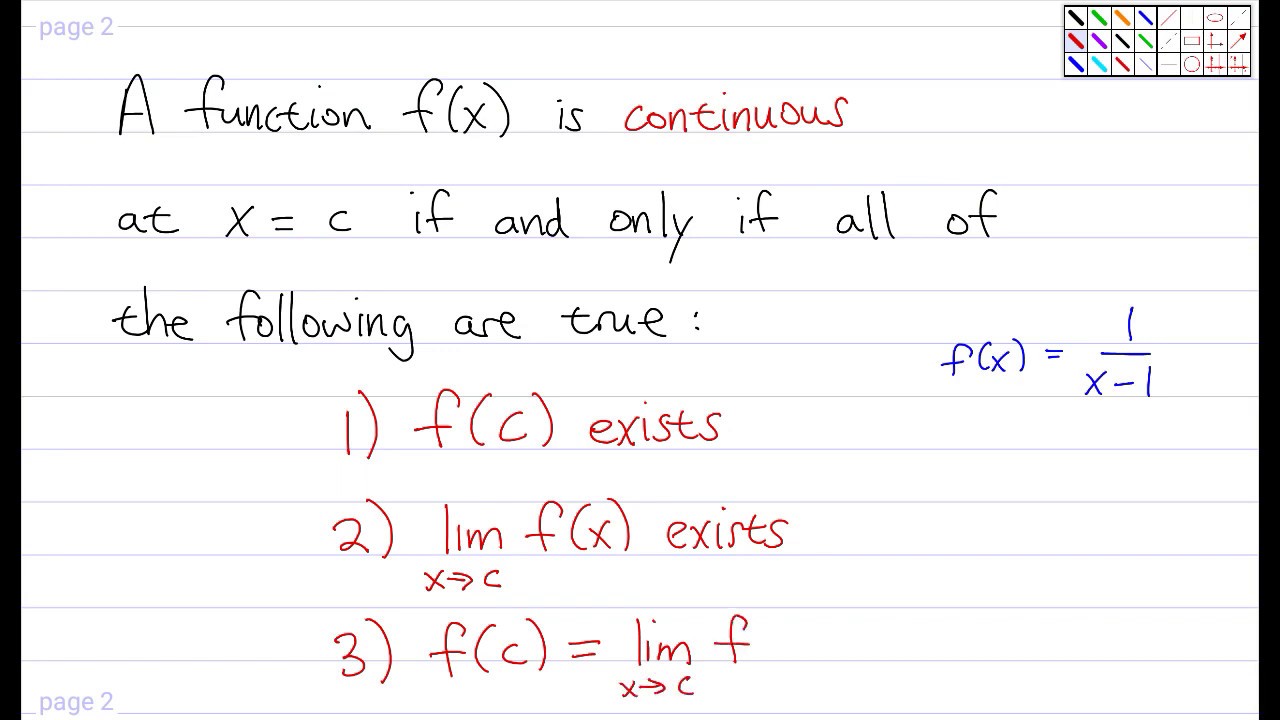 page 2
A function f(x) is continuous
at x = c if and only if all of
the following are true:
f(x) = 1/(x-1)
1) f(c) exists
2) lim f(x) exists
x→c
3) f(c) = lim f
x→c
page 2